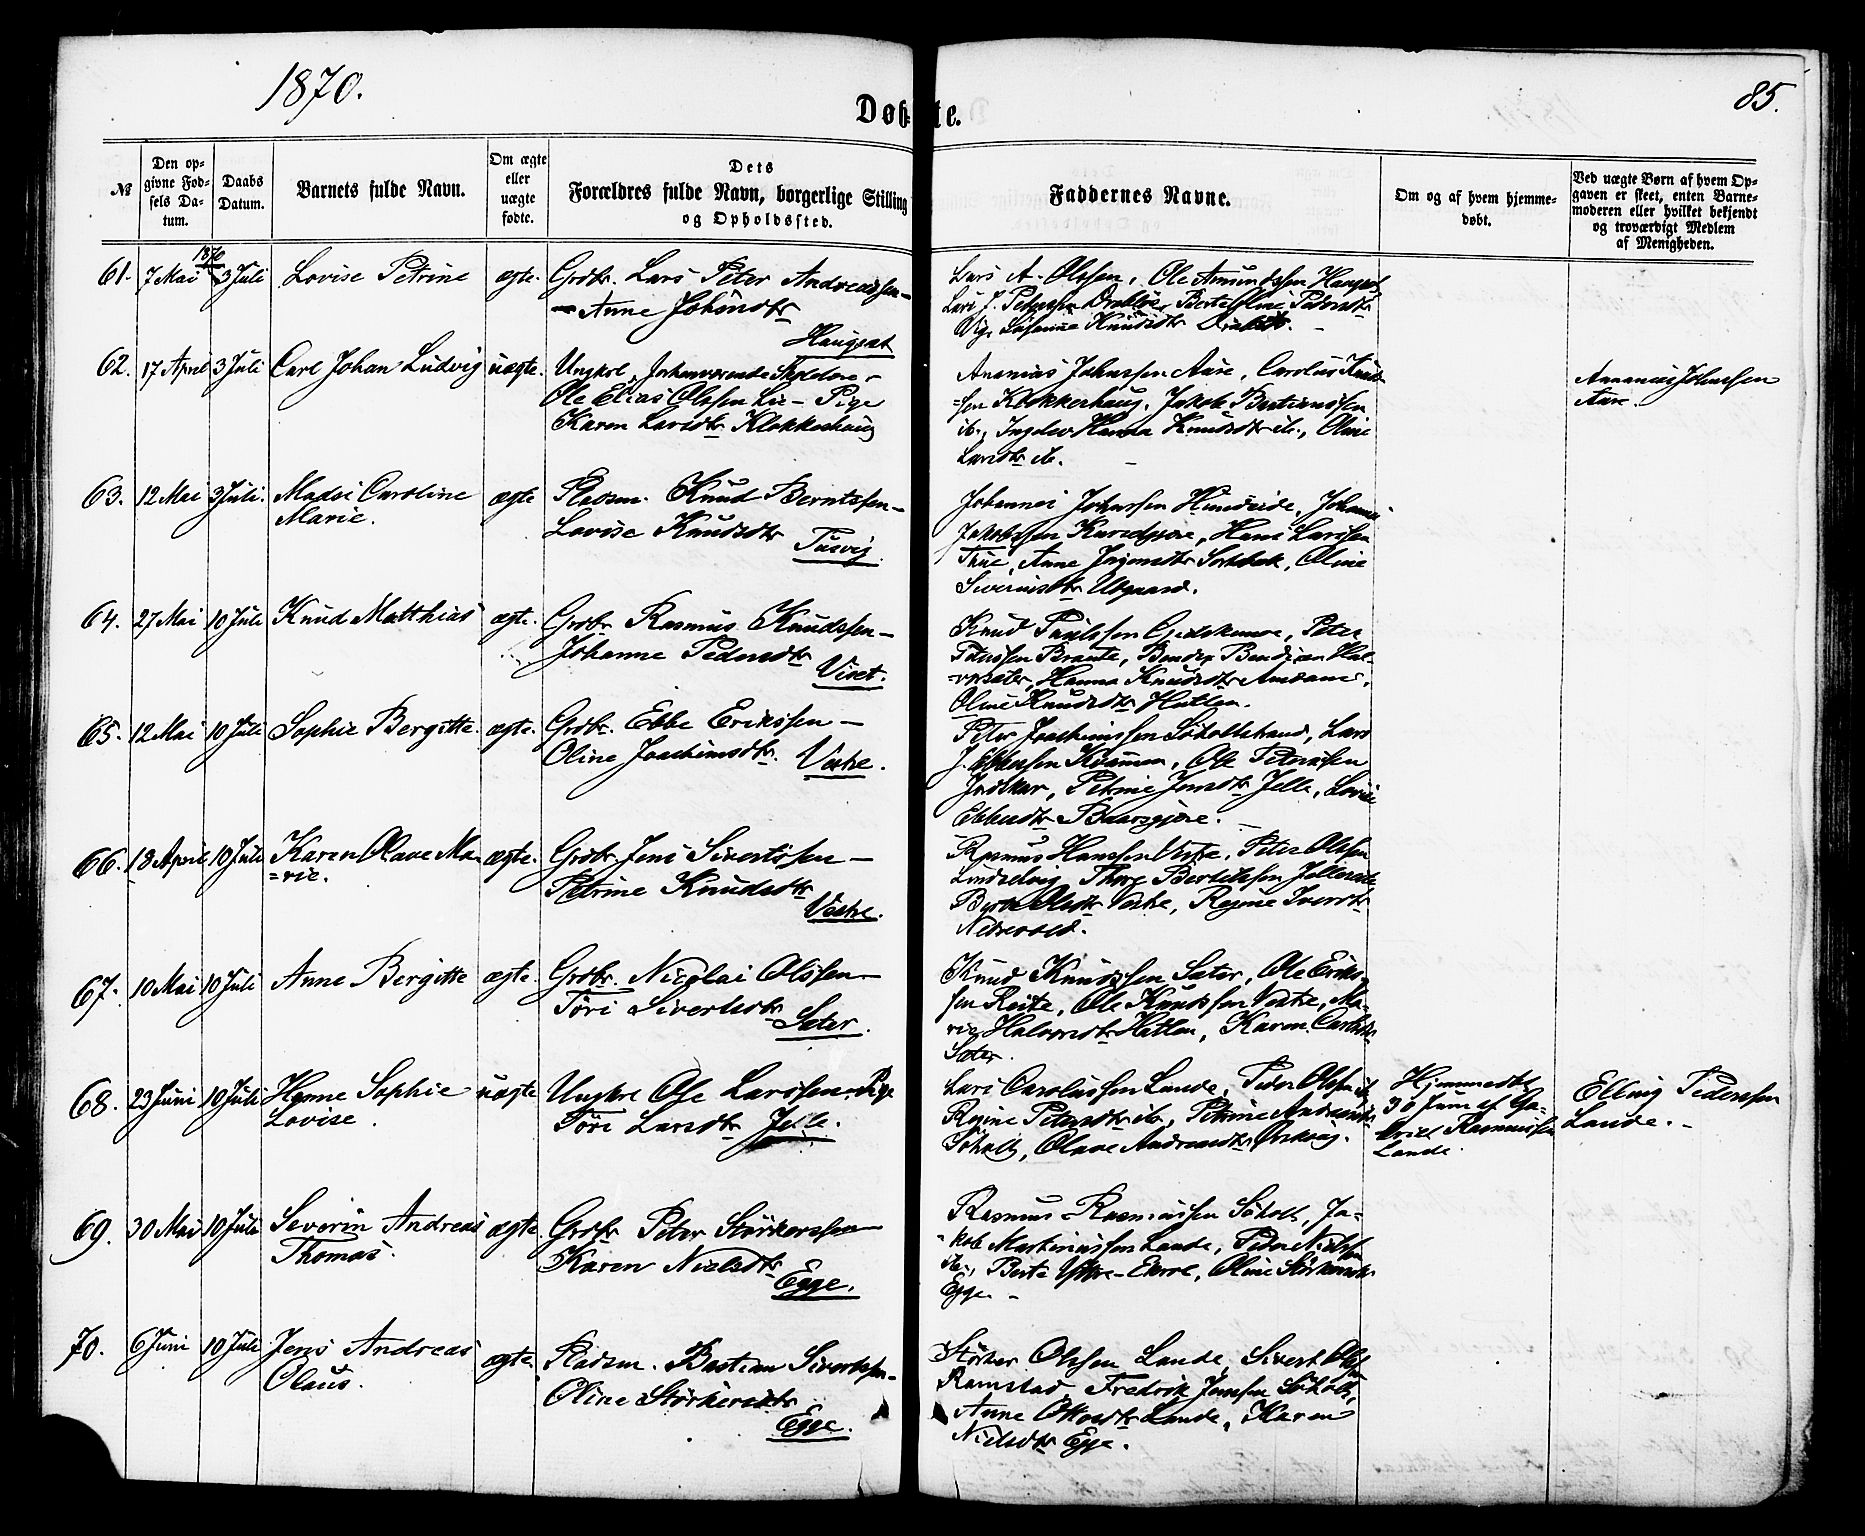 1870.
Døbte.
85.
№
Den opgivne Fødsels Datum.
Daabs Datum.
Barnets fulde Navn.
Om ægte eller uægte fødte.
Dets Forældres fulde Navn, borgerlige Stilling og Opholdssted.
Faddernes Navne.
Om og af hvem hjemmedøbt.
Ved uægte Børn af hvem Opgaven er skeet, enten Barnemoderen eller hvilket bekjendt og troværdigt Medlem af Menigheden.
1870
61. 7 Mai 3 Juli Lovise Petrine ægte. Grdbr. Lars Peter Andreassen –
Anne Johnsdtr
Haugset
Lars A. Olssen, Ole Amundssen Haugset,
Lars J. Peterssen Drabløs, Berte Oline Pedersdtr
Vig, Susanne Knudsdtr Drabløs. –
62. 17 April 3 Juli Carl Johan Ludvig uægte. Ungkrl.
Ole Elias Olssen Lie – Pige
Karen Larsdtr Klokkerhaug
Ananias Johnssen Aure, Carolus Knud-
=sen Klokkerhaug, Jakob Bastianssen
ib., Ingeborg Hanna Knudsdtr ib., Oline
Larsdtr ib. –
Ananias Johnssen
Aure.
63. 12 Mai 3 Juli. Madsi Caroline
Marie.
ægte Pladsm. Knud Berntssen –
Lovise Knudsdtr
Tusvig.
Johannes Johnssen Hundeide, Johannes
Jakobssen, Hans Larssen
Thue, Anne Sortebak, Oline
Sivertsdtr Utgaard.
64. 27 Mai 10 Juli Knud Matthias ægte. Grdbr. Rasmus Knudssen –
Johanne Pedersdtr
Viset.
Knud Paulssen Gjedskemoe, Peter
Peterssen Braute, Bendix Bendixen Hal-
=vorsæter, Hanna Knudsdtr Amdam,
Oline Knudsdtr Hatlen.
65. 12 Mai 10 Juli Sophie Bergitte ægte. Grdbr. Ebbe Erikssen –
Oline Joachimsdtr. Vestre.
Peter Joachimssen Søholtstrand, Lars
J. Ebbessen Kvammen, Ole Peterssen
Indskar, Petrine Jonsdtr Jelle, Lovise
Ebbesdtr Baarsgjøre. –
66. 18 April 10 Juli Karen Olave Ma-
=rie.
ægte. Grdbr. Jens Sivertssen –
Petrine Knudsdtr
Vestre.
Rasmus Hanssen Vestre, Peter Olssen
Lindset, Thore Bertilssen Jelleseter,
Berte Olsdtr Vestre, Regine Iversdtr
Nedrevold.
67. 10 Mai 10 Juli Anne Bergitte ægte. Grdbr. Nicolai Olssen –
Töri Sivertsdtr
Sæter.
Knud Knudssen Sæter, Ole Eriks-
sen Reite, Ole Knudssen Vestre, Ma-
rie Halvorsdtr Hatlen, Karen Carlsdtr
Sæter.
68. 23 Juni 10 Juli Hanne Sophie
Lovise.
uægte Ungkrl Ole Larssen – Pige
Töri Larsdtr Jelle.
Lars Carolussen Lande, Peder Olssen ib.
Regine Petersdtr ib., Petrine Andreasdtr
Søholt, Olave Andreasdtr Ørskoug.
Hjemmedøbt
30 Juni af Ga-
briel Rasmussen
Lande.
Elling Pederssen
Lande. –
69. 30 Mai 10 Juli Severin Andreas
Thomas.
ægte Grdbr Peter Störkerssen –
Karen Nielsdtr
Egge.
Rasmus Rasmussen Søholt, Ja-
=kob Martinussen Lande, Peder Nielssen
ib., Berte Yttre-Ekroe, Oline Störkersdtr
Egge. –
70. 6 Juni 10 Juli Jens Andreas
Olaus.
ægte Pladsm. Bastian Sivertssen –
Oline Störkersdtr
Egge.
Störker Olssen Lande, Sivert Olss.
Ramstad, Fredrik Jenssen Søholt,
Anne Ottosdtr Lande, Karen
Nielsdtr Egge.